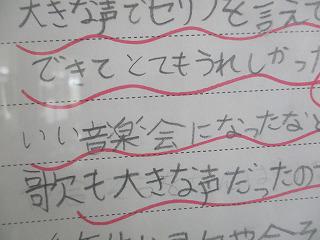 大きな声でセリフを言えて
できてとてもうれしかった
いい音楽会になったなと
歌も大きな声だったの